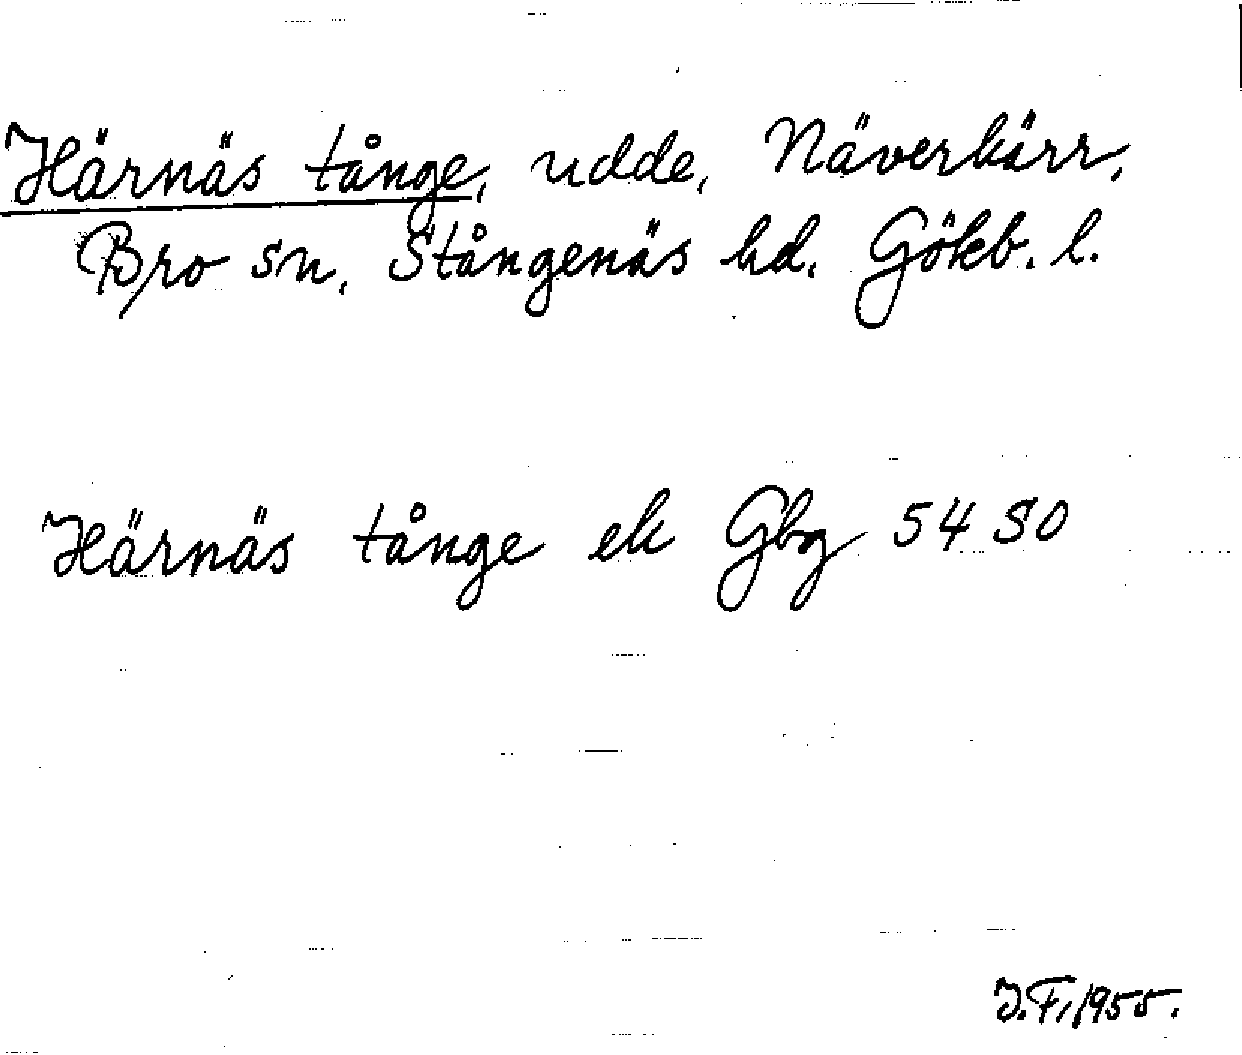 Härnäs tånge, udde, Näverkärr,
Bro sn, Stångenäs hd. Gökb. l.
Härnäs tånge ek Gbg 54 SO
J.F, 1955.